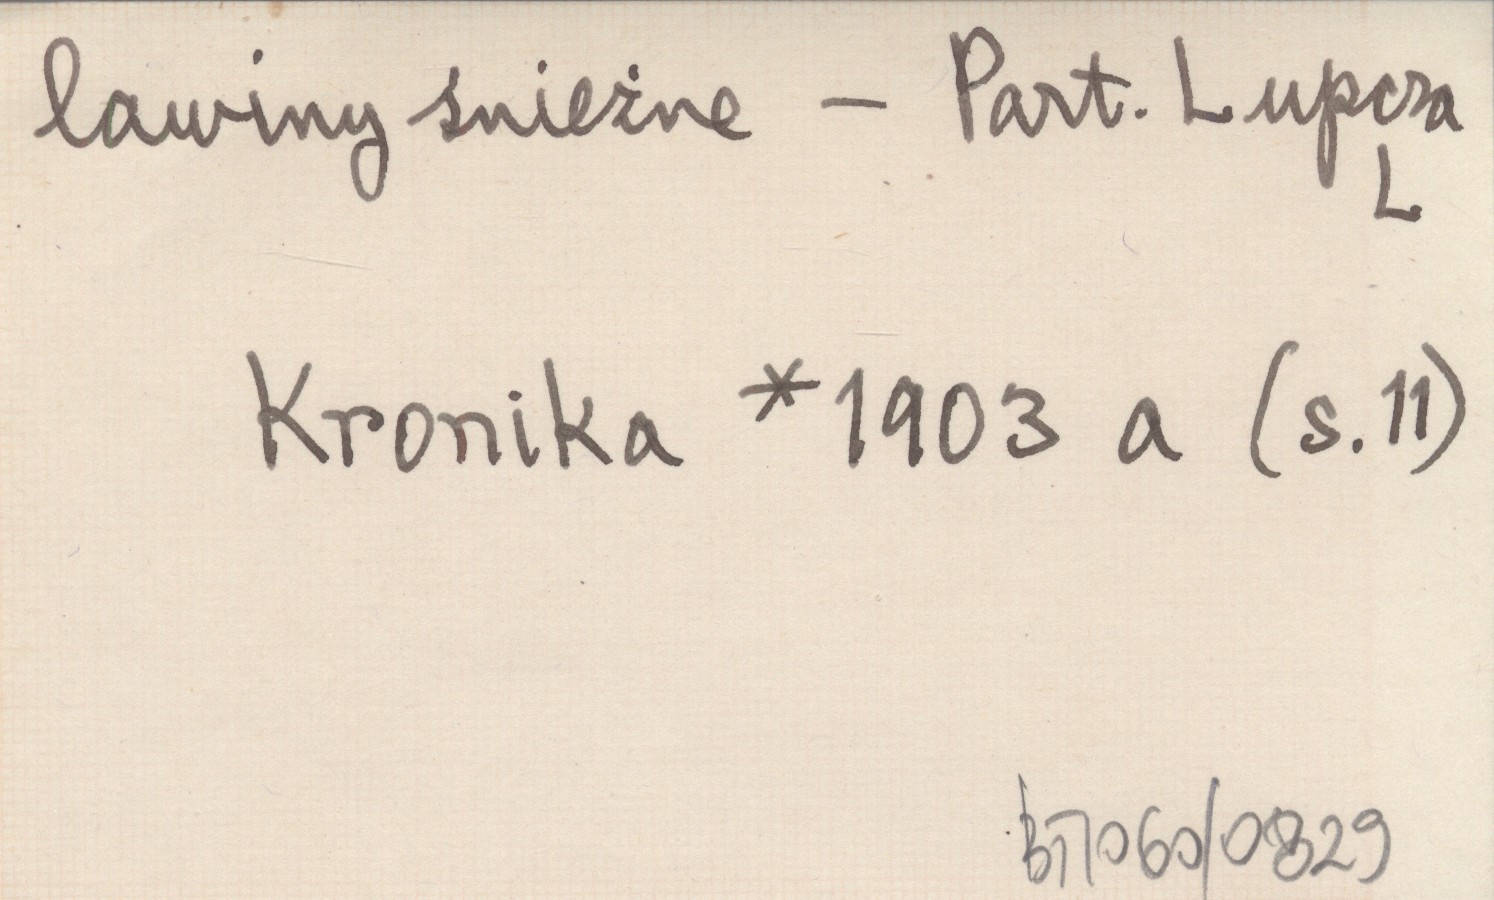 lawiny śnieżne – Part. Lupcza
L
Kronika *1903 a (s. 11)
BT7060/0829